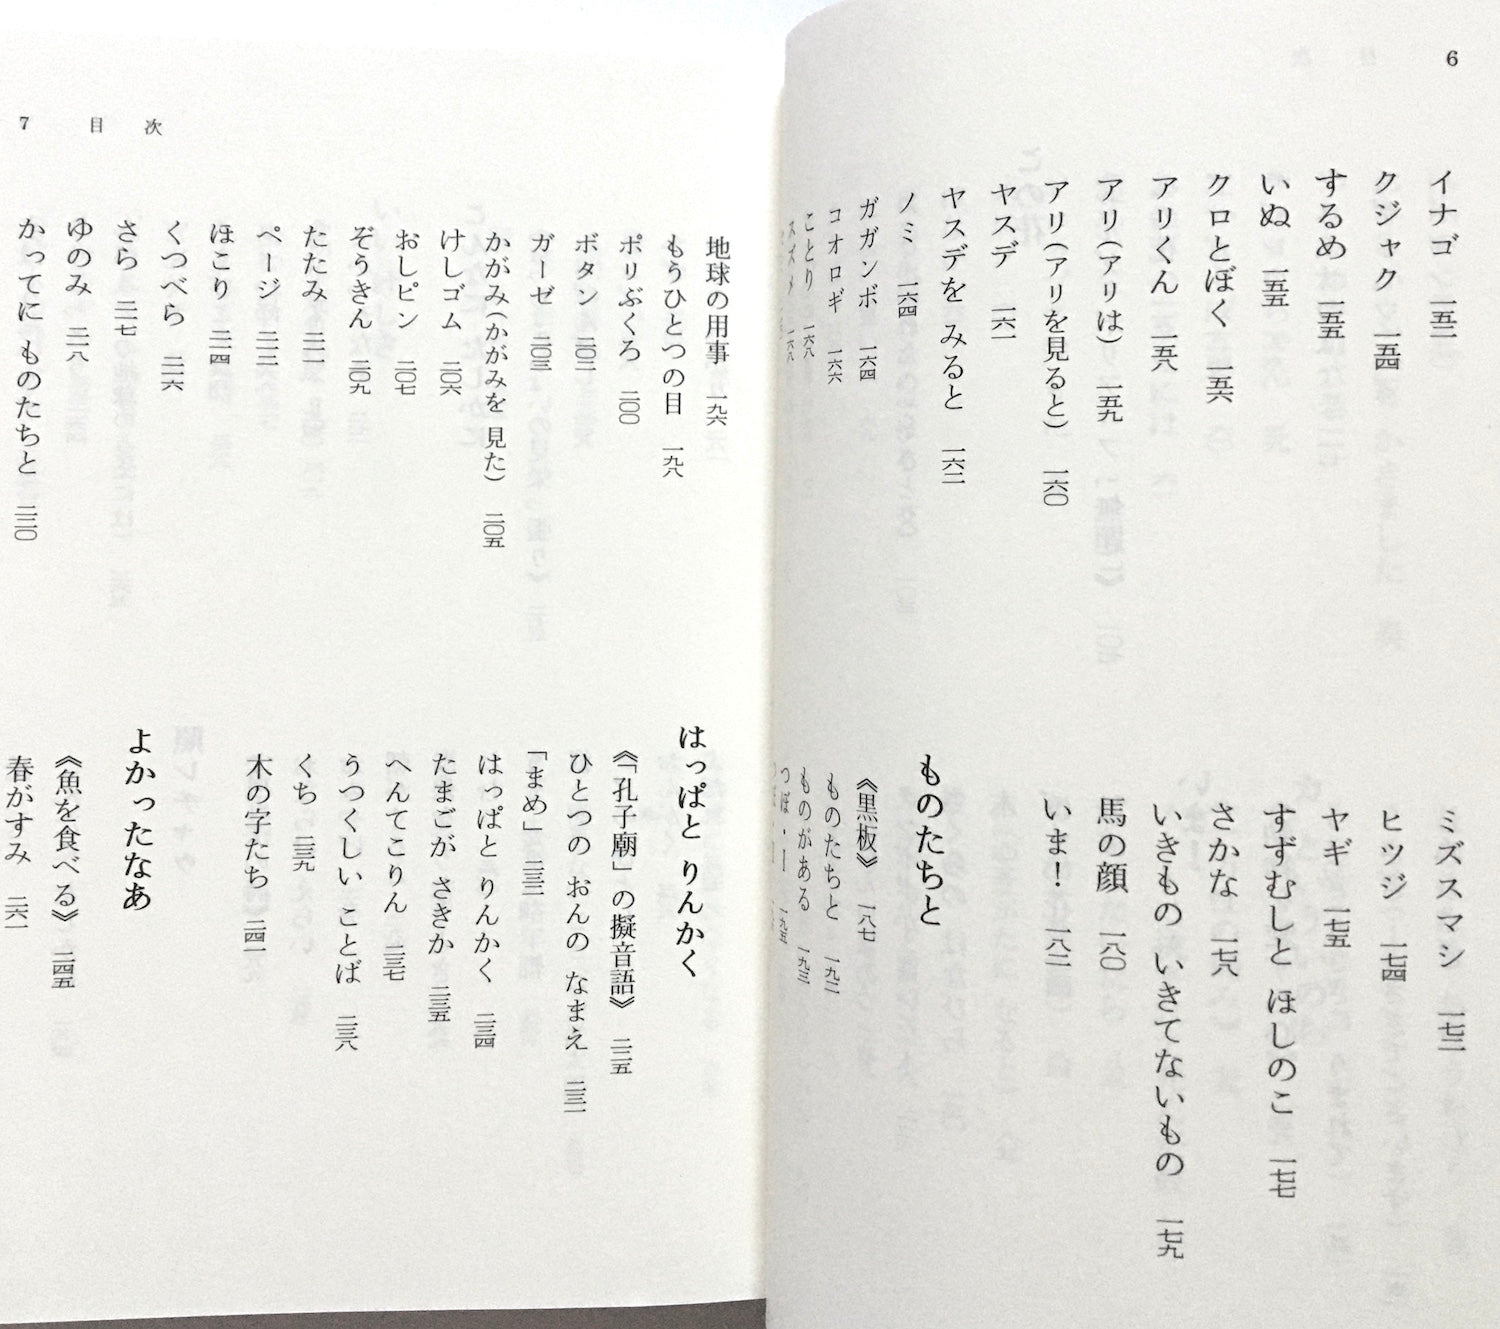 6
イナゴ 一五二
クジャク 一五四
するめ 一五五
いぬ 一五五
クロとぼく 一五六
アリくん 一五八
アリ(アリは) 一五九
アリ(アリを見ると) 一六〇
ヤスデ 一六一
ヤスデを みると 一六二
ノミ 一六四
ガガンボ 一六四
コオロギ 一六六
ことり 一六八
スズメ 一六八
ミズスマシ 一七二
ヒツジ 一七四
ヤギ 一七五
すずむしと ほしのこ 一七七
さかな 一七八
いきもの いきてないもの 一七九
馬の顔 一八〇
いま! 一八二
ものたちと
《黒板》 一八七
ものたちと 一九二
ものがある 一九三
つぼ・Ⅰ 一九五
7 目次
地球の用事 一九六
もうひとつの目 一九八
ポリぶくろ 二〇〇
ボタン 二〇二
ガーゼ 二〇三
かがみ(かがみを 見た) 二〇五
けしゴム 二〇六
おしピン 二〇七
ぞうきん 二〇九
たたみ 二一一
ページ 二一二
ほこり 二一四
くつべら 二一六
さら 二一七
ゆのみ 二一八
かってに ものたちと 二二〇
はっぱと りんかく
《「孔子廟」の擬音語》 二二五
ひとつの おんの なまえ 二三一
「まめ」 二三二
はっぱと りんかく 二三四
たまごが さきか 二三五
へんてこりん 二三七
うつくしい ことば 二三八
くち 二三九
木の字たち 二四一
よかったなあ
《魚を食べる》 二四五
春がすみ 二六一